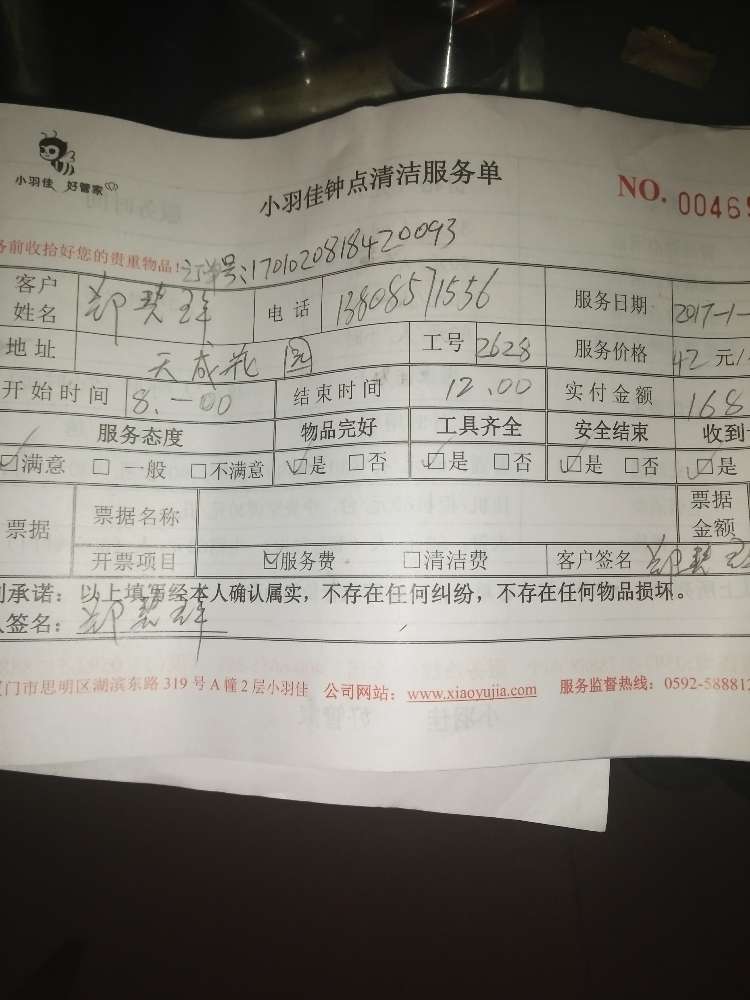 小羽佳 好管家
小羽佳钟点清洁服务单
NO. 0046
务前收拾好您的贵重物品！订单号:1701020818420093
客户姓名 郑碧 电话 13808571556 服务日期 2017-1-
地址 天成花园 工号 2628 服务价格 42元/
开始时间 8.-00 结束时间 12.00 实付金额 168
服务态度 物品完好 工具齐全 安全结束 收到
☑满意 □一般 □不满意 ☑是 □否 ☑是 □否 ☑是 □否 ☑是
票据 票据名称 票据金额
开票项目 ☑服务费 □清洁费 客户签名 郑碧
承诺：以上填写经本人确认属实，不存在任何纠纷，不存在任何物品损坏。
签名：郑碧
门市思明区湖滨东路 319 号 A 幢 2 层小羽佳 公司网站：www.xiaoyujia.com 服务监督热线：0592-588812